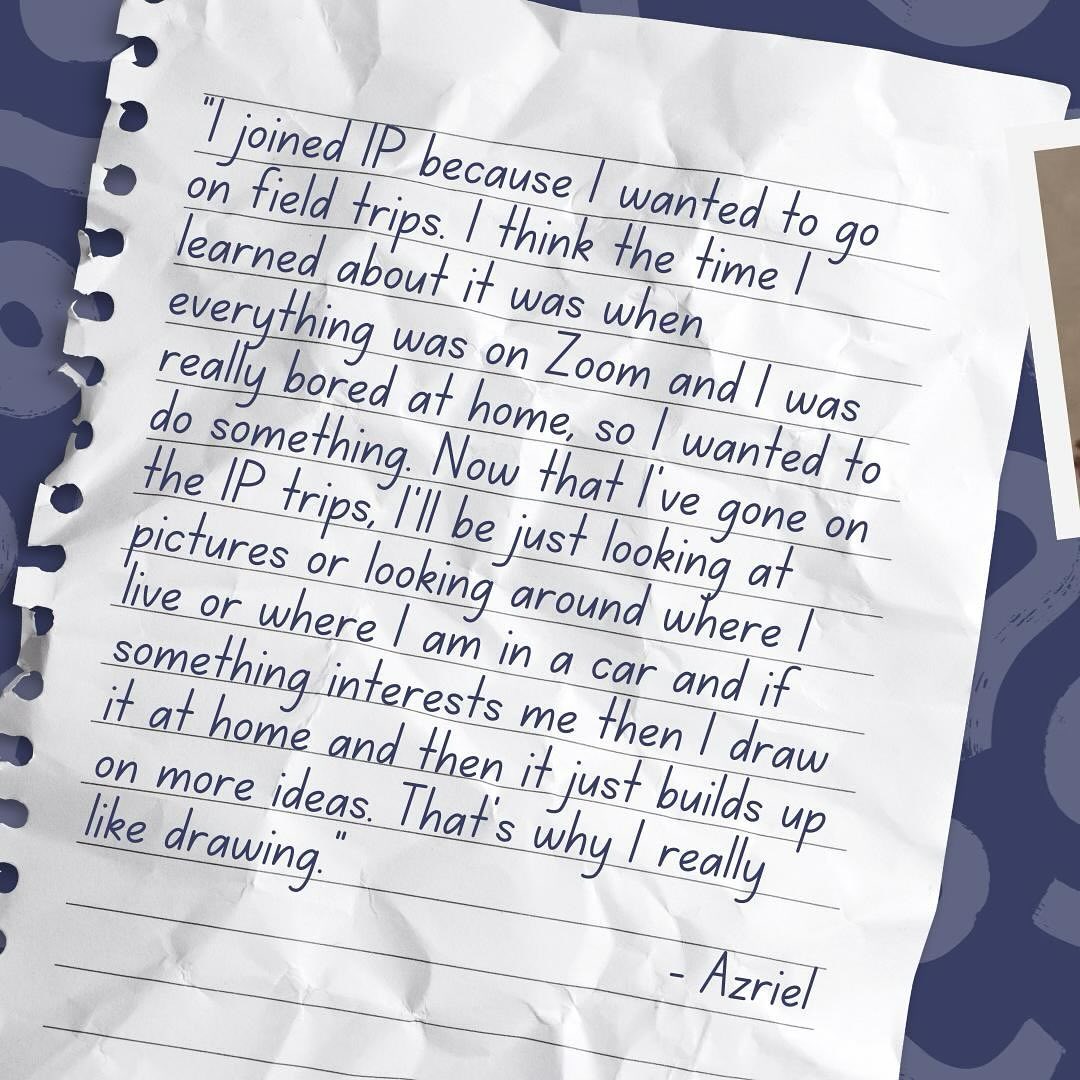 "I joined IP because I wanted to go
on field trips. I think the time I
learned about it was when
everything was on Zoom and I was
really bored at home, so I wanted to
do something. Now that I've gone on
the IP trips, I'll be just looking at
pictures or looking around where I
live or where I am in a car and if
something interests me then I draw
it at home and then it just builds up
on more ideas. That's why I really
like drawing."
- Azriel